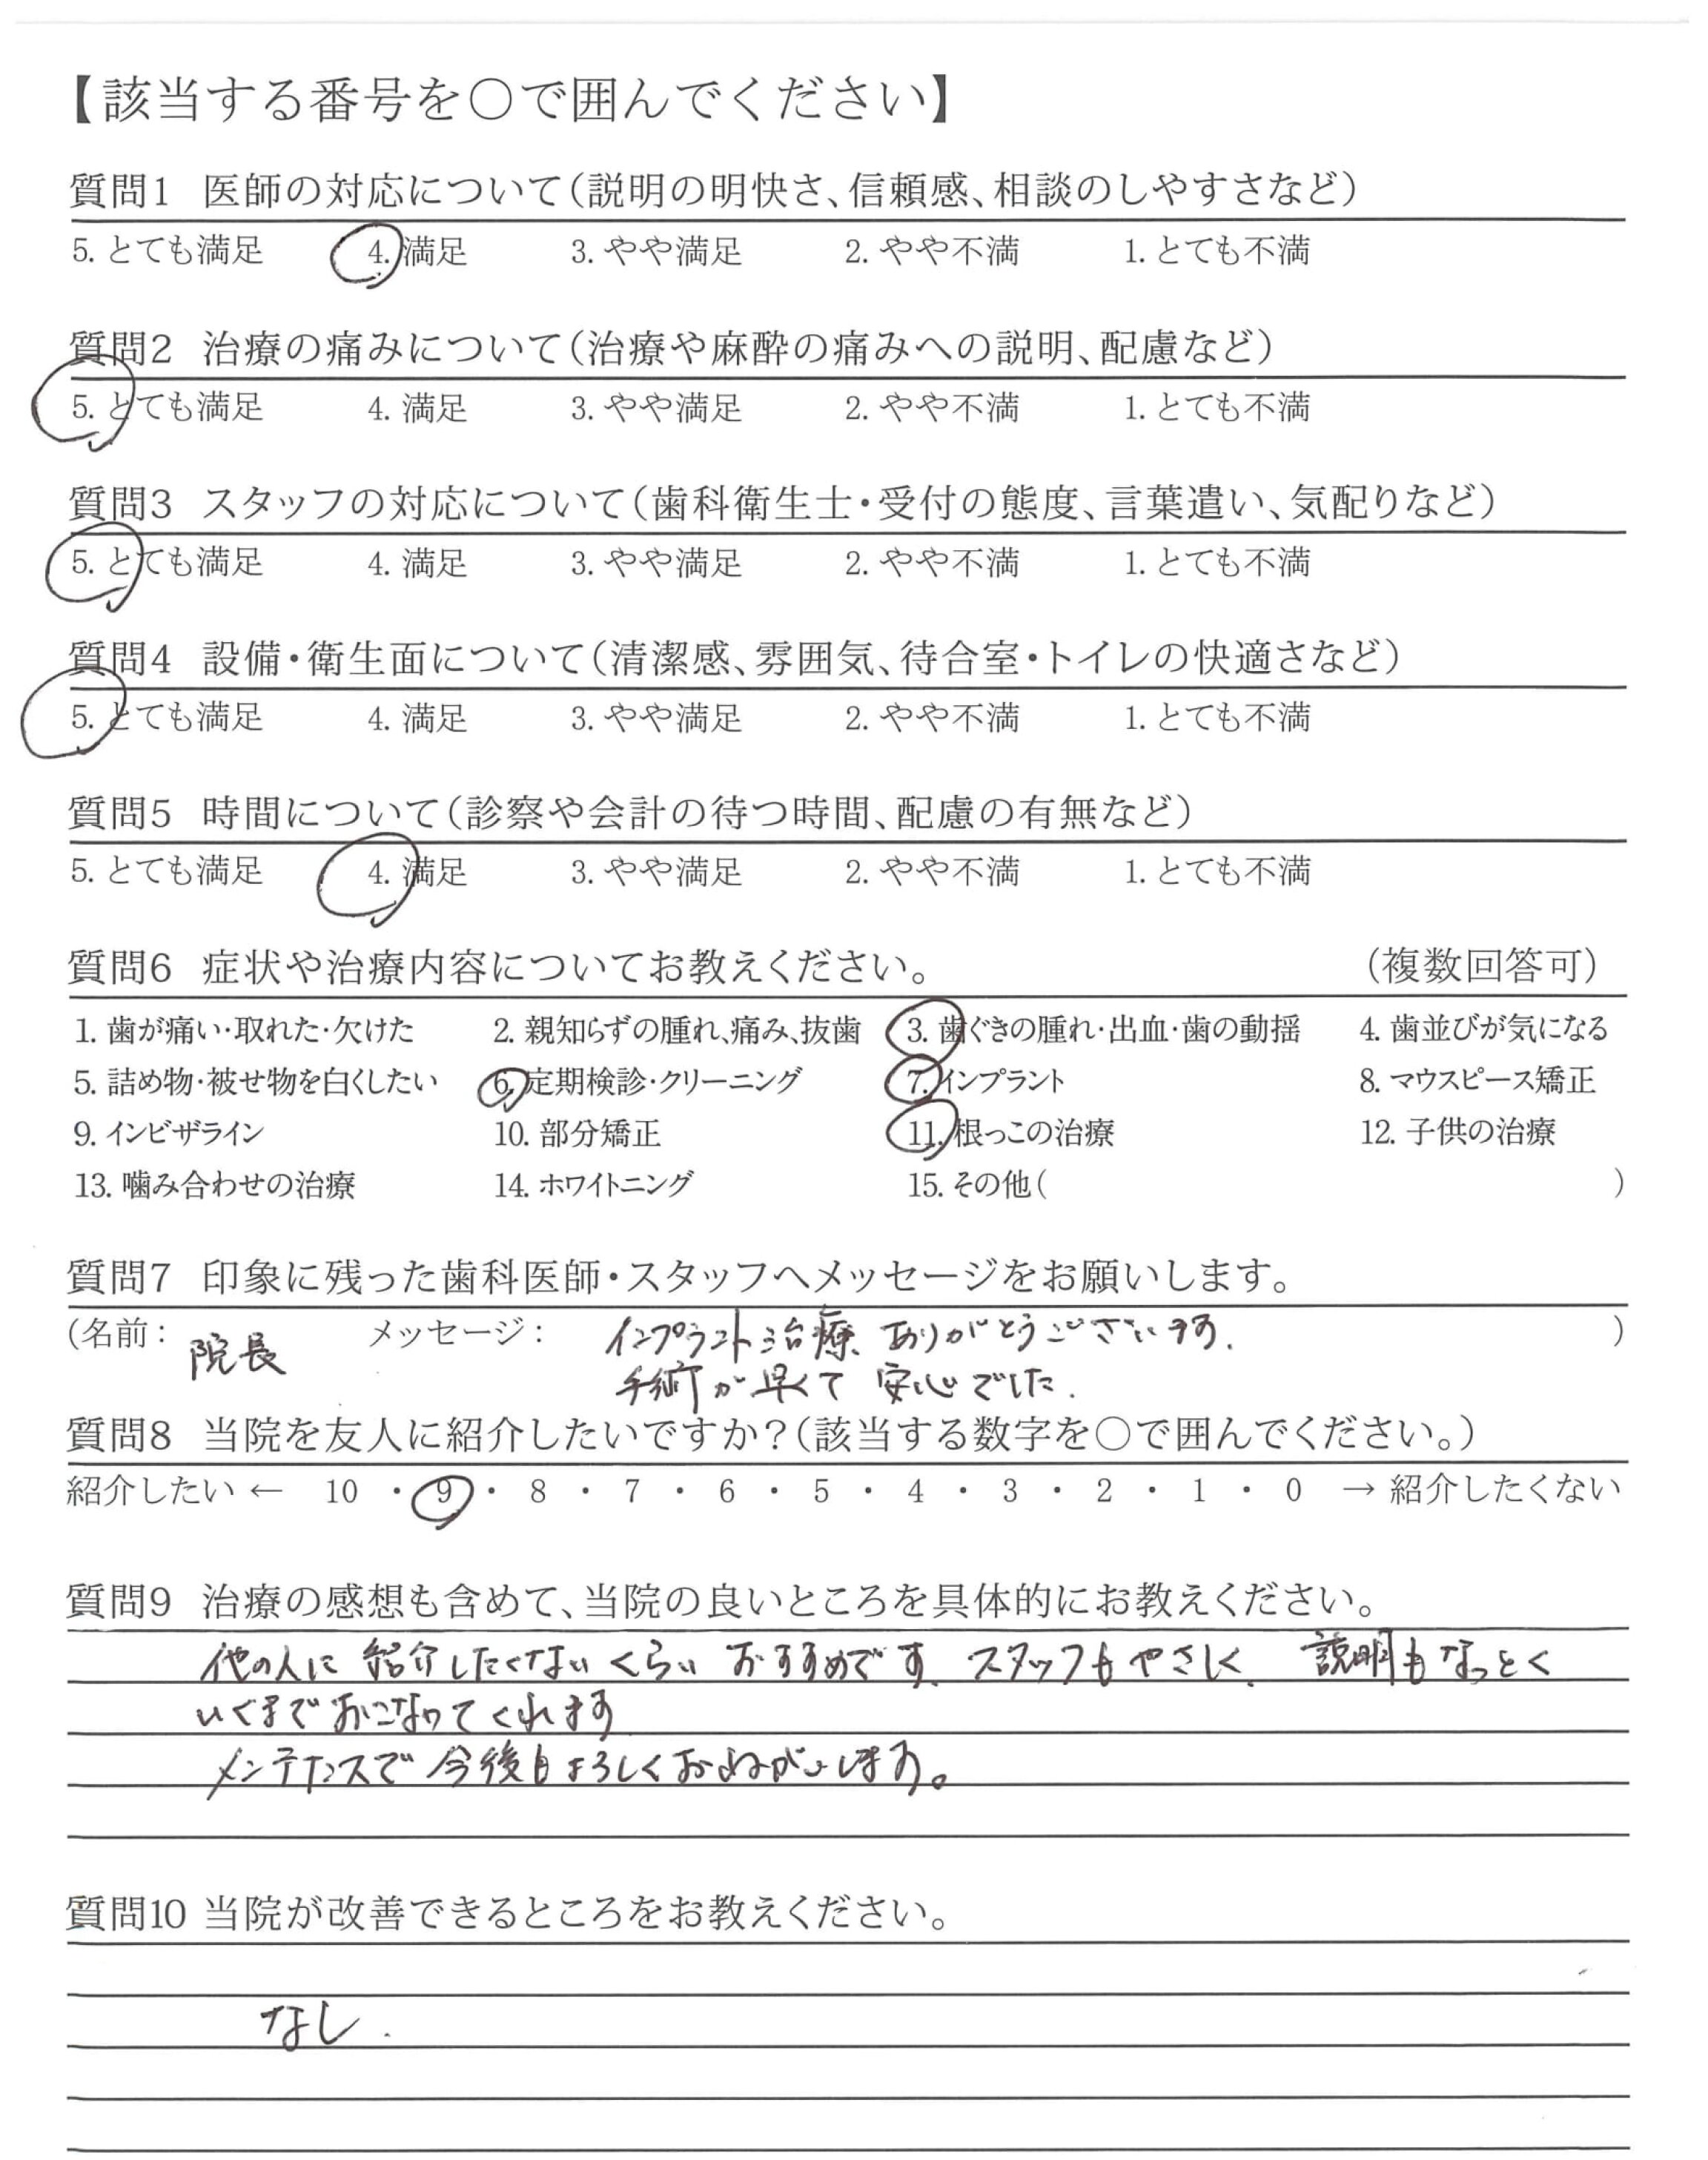 【該当する番号を〇で囲んでください】
質問1 医師の対応について(説明の明快さ、信頼感、相談のしやすさなど)
5. とても満足 4. 満足 3. やや満足 2. やや不満 1. とても不満
質問2 治療の痛みについて(治療や麻酔の痛みへの説明、配慮など)
5. とても満足 4. 満足 3. やや満足 2. やや不満 1. とても不満
質問3 スタッフの対応について(歯科衛生士・受付の態度、言葉遣い、気配りなど)
5. とても満足 4. 満足 3. やや満足 2. やや不満 1. とても不満
質問4 設備・衛生面について(清潔感、雰囲気、待合室・トイレの快適さなど)
5. とても満足 4. 満足 3. やや満足 2. やや不満 1. とても不満
質問5 時間について(診察や会計の待つ時間、配慮の有無など)
5. とても満足 4. 満足 3. やや満足 2. やや不満 1. とても不満
質問6 症状や治療内容についてお教えください。 (複数回答可)
1. 歯が痛い・取れた・欠けた 2. 親知らずの腫れ、痛み、抜歯 3. 歯ぐきの腫れ・出血・歯の動揺 4. 歯並びが気になる
5. 詰め物・被せ物を白くしたい 6. 定期検診・クリーニング 7. インプラント 8. マウスピース矯正
9. インビザライン 10. 部分矯正 11. 根っこの治療 12. 子供の治療
13. 噛み合わせの治療 14. ホワイトニング 15. その他( )
質問7 印象に残った歯科医師・スタッフへメッセージをお願いします。
(名前: 院長 メッセージ: インプラント治療 ありがとうございます. )
手術が早くて 安心でした.
質問8 当院を友人に紹介したいですか?(該当する数字を〇で囲んでください。)
紹介したい ← 10 ・ 9 ・ 8 ・ 7 ・ 6 ・ 5 ・ 4 ・ 3 ・ 2 ・ 1 ・ 0 → 紹介したくない
質問9 治療の感想も含めて、当院の良いところを具体的にお教えください。
他の人に 紹介したくないくらい おすすめです. スタッフもやさしく、説明もなっとく
いくまでおこなってくれます
メンテナンスで 今後もよろしくおねがいします。
質問10 当院が改善できるところをお教えください。
なし.